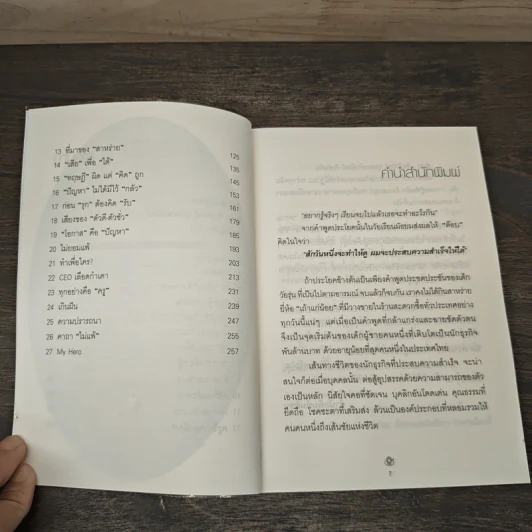 13 ที่มาของ "สาหร่าย" 125
14 "เสีย" เพื่อ "ได้" 135
15 "ทฤษฎี" ผิด แต่ "คิด" ถูก 145
16 "ปัญหา" ไม่ได้มีไว้ "กลัว" 153
17 ก่อน "รุก" ต้องคิด "รับ" 161
18 เสียงของ "ตัวดี-ตัวชั่ว" 179
19 "โอกาส" คือ "ปัญหา" 185
20 ไม่ยอมแพ้ 193
21 ทำเพื่อใคร? 203
22 CEO เลือดกำเดา 213
23 ทุกอย่างคือ "ครู" 231
24 เกินฝัน 239
25 ความปรารถนา 247
26 คาถา "ไม่แพ้" 255
27 My Hero 257
คำนำสำนักพิมพ์
"อยากรู้จริงๆ เรียนจบไปแล้วเธอจะทำอะไรกิน"
จากคำพูดประโยคนั้นในวัยเรียนมัธยมส่งผลให้ "ต๊อบ"
คิดในใจว่า
"สักวันหนึ่งจะทำให้ดู ผมจะประสบความสำเร็จให้ได้"
ถ้าประโยคข้างต้นเป็นเพียงคำพูดประชดประชันของเด็ก
วัยรุ่น ที่เป็นไปตามอารมณ์ จบแล้วก็จบกัน เราคงไม่ได้กินสาหร่าย
ยี่ห้อ "เถ้าแก่น้อย" ที่มีวางขายในร้านสะดวกซื้อทั่วประเทศอย่าง
ทุกวันนี้แน่ๆ แต่เมื่อเป็นคำพูดที่กล้าแกร่งและอาจขัดตัวตน
จึงเป็นจุดเริ่มต้นของเด็กผู้ชายคนหนึ่งที่เติบโตเป็นนักธุรกิจ
พันล้านบาท ด้วยอายุน้อยที่สุดคนหนึ่งในประเทศไทย
เส้นทางชีวิตของนักธุรกิจที่ประสบความสำเร็จ จะน่า
สนใจก็ต่อเมื่อบุคคลนั้น ต่อสู้อุปสรรคด้วยความสามารถของตัว
เองเป็นหลัก นิสัยใจคอที่ชัดเจน บุคลิกอันโดดเด่น คุณธรรมที่
ยึดถือ โชคชะตาที่เสริมส่ง ล้วนเป็นองค์ประกอบที่หลอมรวมให้
คนคนหนึ่งถึงเส้นชัยแห่งชีวิต
7